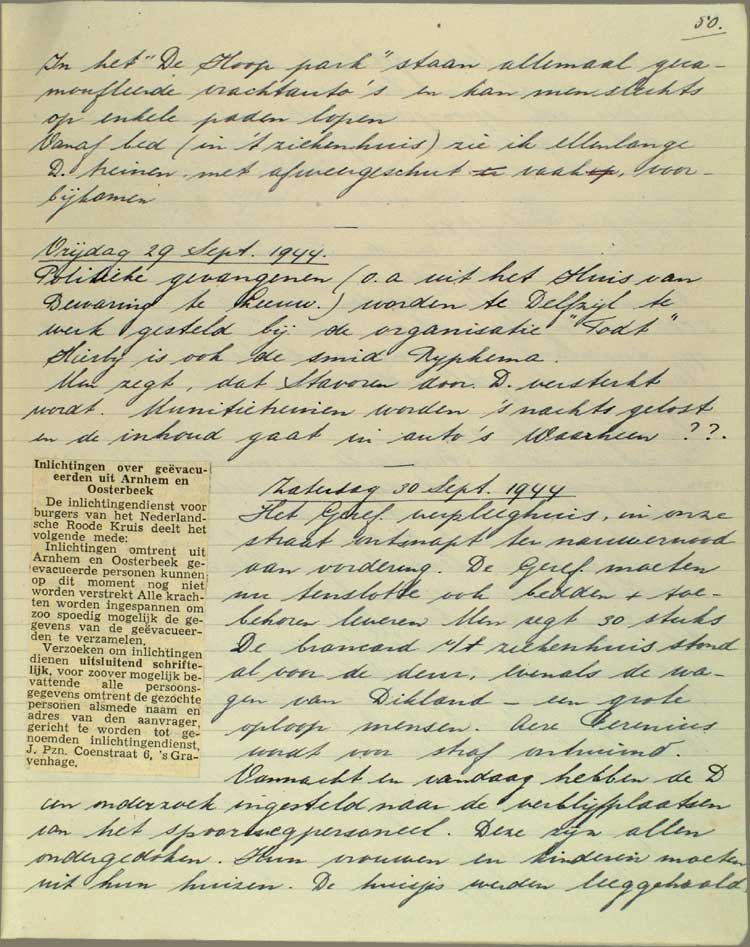 50.
In het "De Hoop park" staan allemaal geca-
moufleerde vrachtauto's en kan men slechts
op enkele paden lopen
Vanaf bed (in 't ziekenhuis) zie ik ellenlange
D. treinen, met afweergeschut vaak, voor-
bijkomen
Vrijdag 29 Sept. 1944.
Politieke gevangenen (o.a uit het Huis van
Bewaring te Leeuw.) worden te Delfzijl te
werk gesteld bij de organisatie "Todt"
Hierbij is ook de smid Ryphema.
Men zegt, dat Stavoren door D. versterkt
wordt. Munitietreinen worden 's nachts gelost
en de inhoud gaat in auto's Waarheen ??.
Inlichtingen over geëvacu-
eerden uit Arnhem en
Oosterbeek
De inlichtingendienst voor
burgers van het Nederland-
sche Roode Kruis deelt het
volgende mede:
Inlichtingen omtrent uit
Arnhem en Oosterbeek ge-
evacueerde personen kunnen
op dit moment nog niet
worden verstrekt Alle krach-
ten worden ingespannen om
zoo spoedig mogelijk de ge-
gevens van de geëvacueer-
den te verzamelen.
Verzoeken om inlichtingen
dienen uitsluitend schrifte-
lijk, voor zoover mogelijk be-
vattende alle persoons-
gegevens omtrent de gezochte
personen alsmede naam en
adres van den aanvrager,
gericht te worden tot ge-
noemden inlichtingendienst,
J. Pzn. Coenstraat 6, 's Gra-
venhage.
Zaterdag 30 Sept. 1944
Het Geref. verpleeghuis, in onze
straat ontsnapt ter nauwernood
aan vordering. De Geref. moeten
nu tenslotte ook bedden + toe-
behoren leveren Men zegt 30 stuks
De brancard v/h ziekenhuis stond
al voor de deur, evenals de wa-
gen van Dikland – een grote
oploop mensen.
wordt voor straf ontruimd.
Vannacht en vandaag hebben de D
een onderzoek ingesteld naar de verblijfplaatsen
van het spoorwegpersoneel. Deze zijn allen
ondergedoken. Hun vrouwen en kinderen moeten
uit hun huizen. De huisjes werden leeggehaald